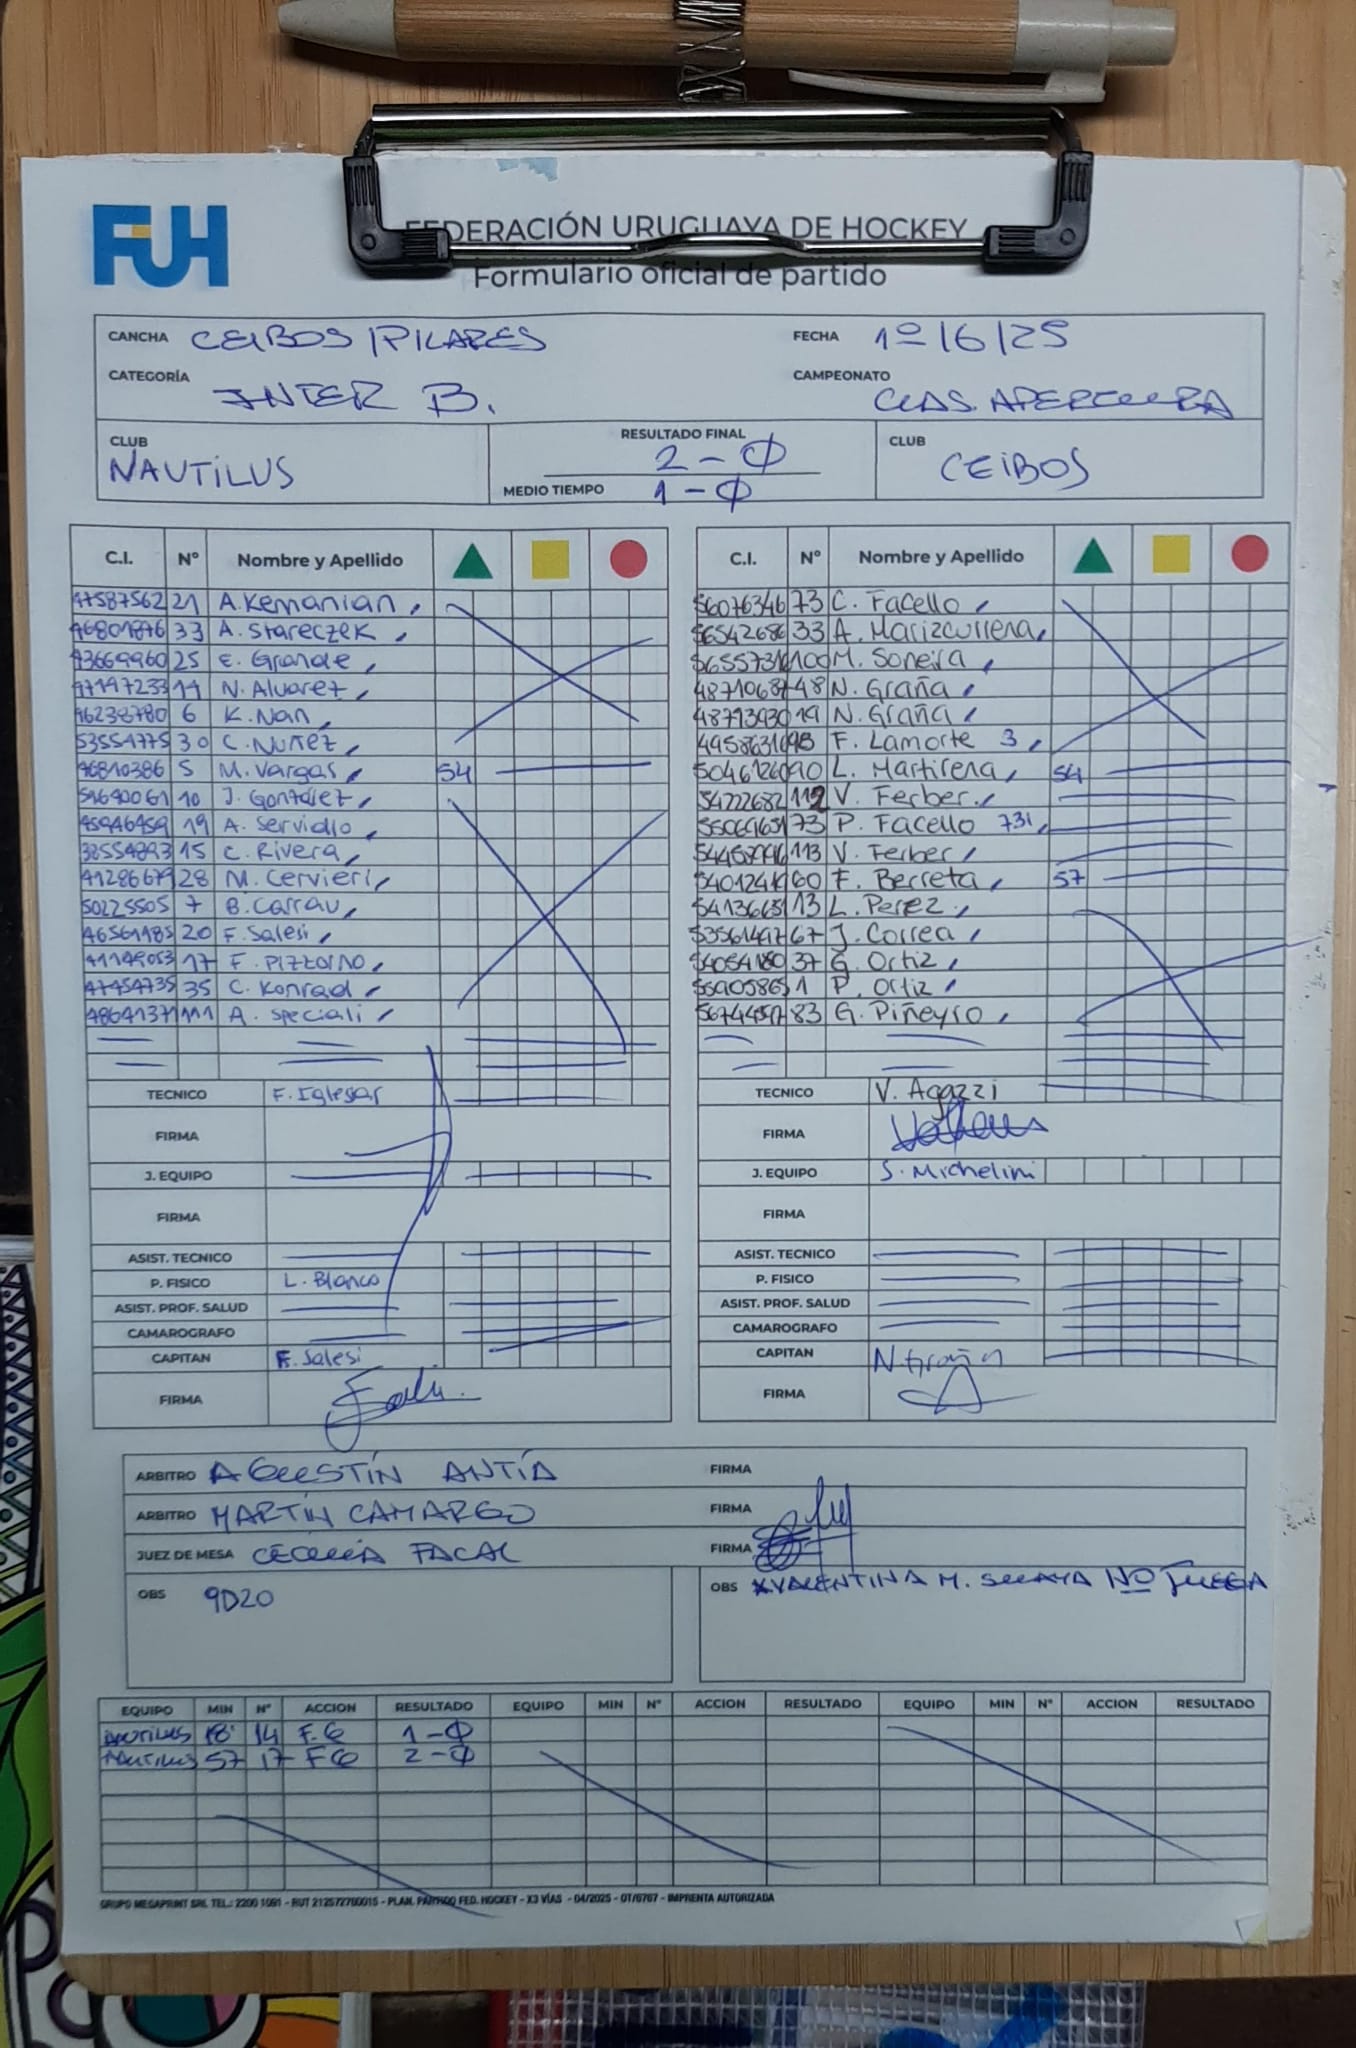 FUH
FEDERACIÓN URUGUAYA DE HOCKEY
Formulario oficial de partido
CANCHA CEIBOS / PILARES FECHA 1º/6/25
CATEGORÍA INTER B. CAMPEONATO CLAS. APERTURA
CLUB NAUTILUS RESULTADO FINAL 2-0 CLUB CEIBOS
MEDIO TIEMPO 1-0
C.I. Nº Nombre y Apellido C.I. Nº Nombre y Apellido
47587562 21 A. Kemanian, 56076346 73 C. Facello,
46801876 33 A. Stareczek, 56542686 33 A. Marizcurrena,
43669960 25 E. Grande, 100 M. Soneira,
14 N. Alvarez, 48 N. Graña,
46238780 6 K. Nan, 48793930 19 N. Graña,
53554775 30 C. Nuñez, F. Lamorte 3,
46810386 5 M. Vargas, 54 90 L. Martirena, 54
10 J. Gonzalez, 54222682 112 V. Ferber,
45946459 19 A. Servidio, 73 P. Facello 731,
38554893 15 C. Rivera, 113 V. Ferber,
41286679 28 M. Cervieri, 60 F. Berreta, 57
50225505 7 B. Carrau, 13 L. Perez,
46561185 20 F. Salesi, 67 J. Correa,
41149053 17 F. Pizzorno, 37 G. Ortiz,
47454735 35 C. Konrad, 1 P. Ortiz,
48641371 111 A. Speciali, 83 G. Piñeyro,
TECNICO F. Iglesar TECNICO V. Agazzi
FIRMA FIRMA
J. EQUIPO J. EQUIPO S. Michelini
FIRMA FIRMA
ASIST. TECNICO ASIST. TECNICO
P. FISICO L. Blanco P. FISICO
ASIST. PROF. SALUD ASIST. PROF. SALUD
CAMAROGRAFO CAMAROGRAFO
CAPITAN F. Salesi CAPITAN N. Graña
FIRMA FIRMA
ARBITRO AGUSTÍN ANTÍA FIRMA
ARBITRO MARTÍN CAMARGO FIRMA
JUEZ DE MESA CECILIA FACAL FIRMA
OBS 9D20 OBS VALENTINA M. NO JUEGA
EQUIPO MIN Nº ACCION RESULTADO EQUIPO MIN Nº ACCION RESULTADO EQUIPO MIN Nº ACCION RESULTADO
NAUTILUS 18' 14 F.G 1-0
NAUTILUS 57 17 FG 2-0
GRUPO MEGAPRINT SRL TEL.: 2200 1091 - RUT 212572760015 - PLAN. PARTIDO FED. HOCKEY - X3 VÍAS - 04/2025 - OT/6767 - IMPRENTA AUTORIZADA